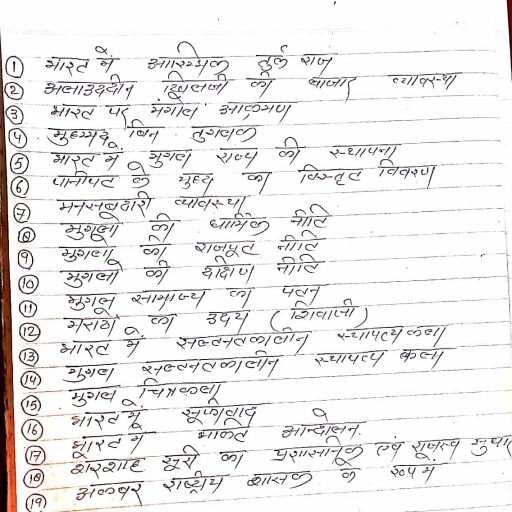 ① भारत में आरम्भिक तुर्क राज
② अलाउददीन खिलजी की बाजार व्यावस्था
③ भारत पर मंगोल आक्रमण
④ मुहम्मद बिन तुगलक
⑤ भारत में मुगल राज्य की स्थापना
⑥ पानीपत के युध्द का विस्तृत विवरण
⑦ मनसबदारी व्यावस्था
⑧ मुगलों की धार्मिक नीति
⑨ मुगलों की राजपूत नीति
⑩ मुगलों की दक्षिण नीति
⑪ मुगल साम्राज्य का पतन
⑫ मराठों का उदय (शिवाजी)
⑬ भारत में सल्तनतकालीन स्थापत्य कला
⑭ मुगल सल्तनतकालीन स्थापत्य कला
⑮ मुगल चित्रकला
⑯ भारत में सूफीवाद
⑰ भारत में भक्ति आन्दोलन
⑱ शेरशाह सूरी का प्रशासनिक एवं राजस्व सुधार
⑲ अकबर राष्ट्रीय शासक के रूप में